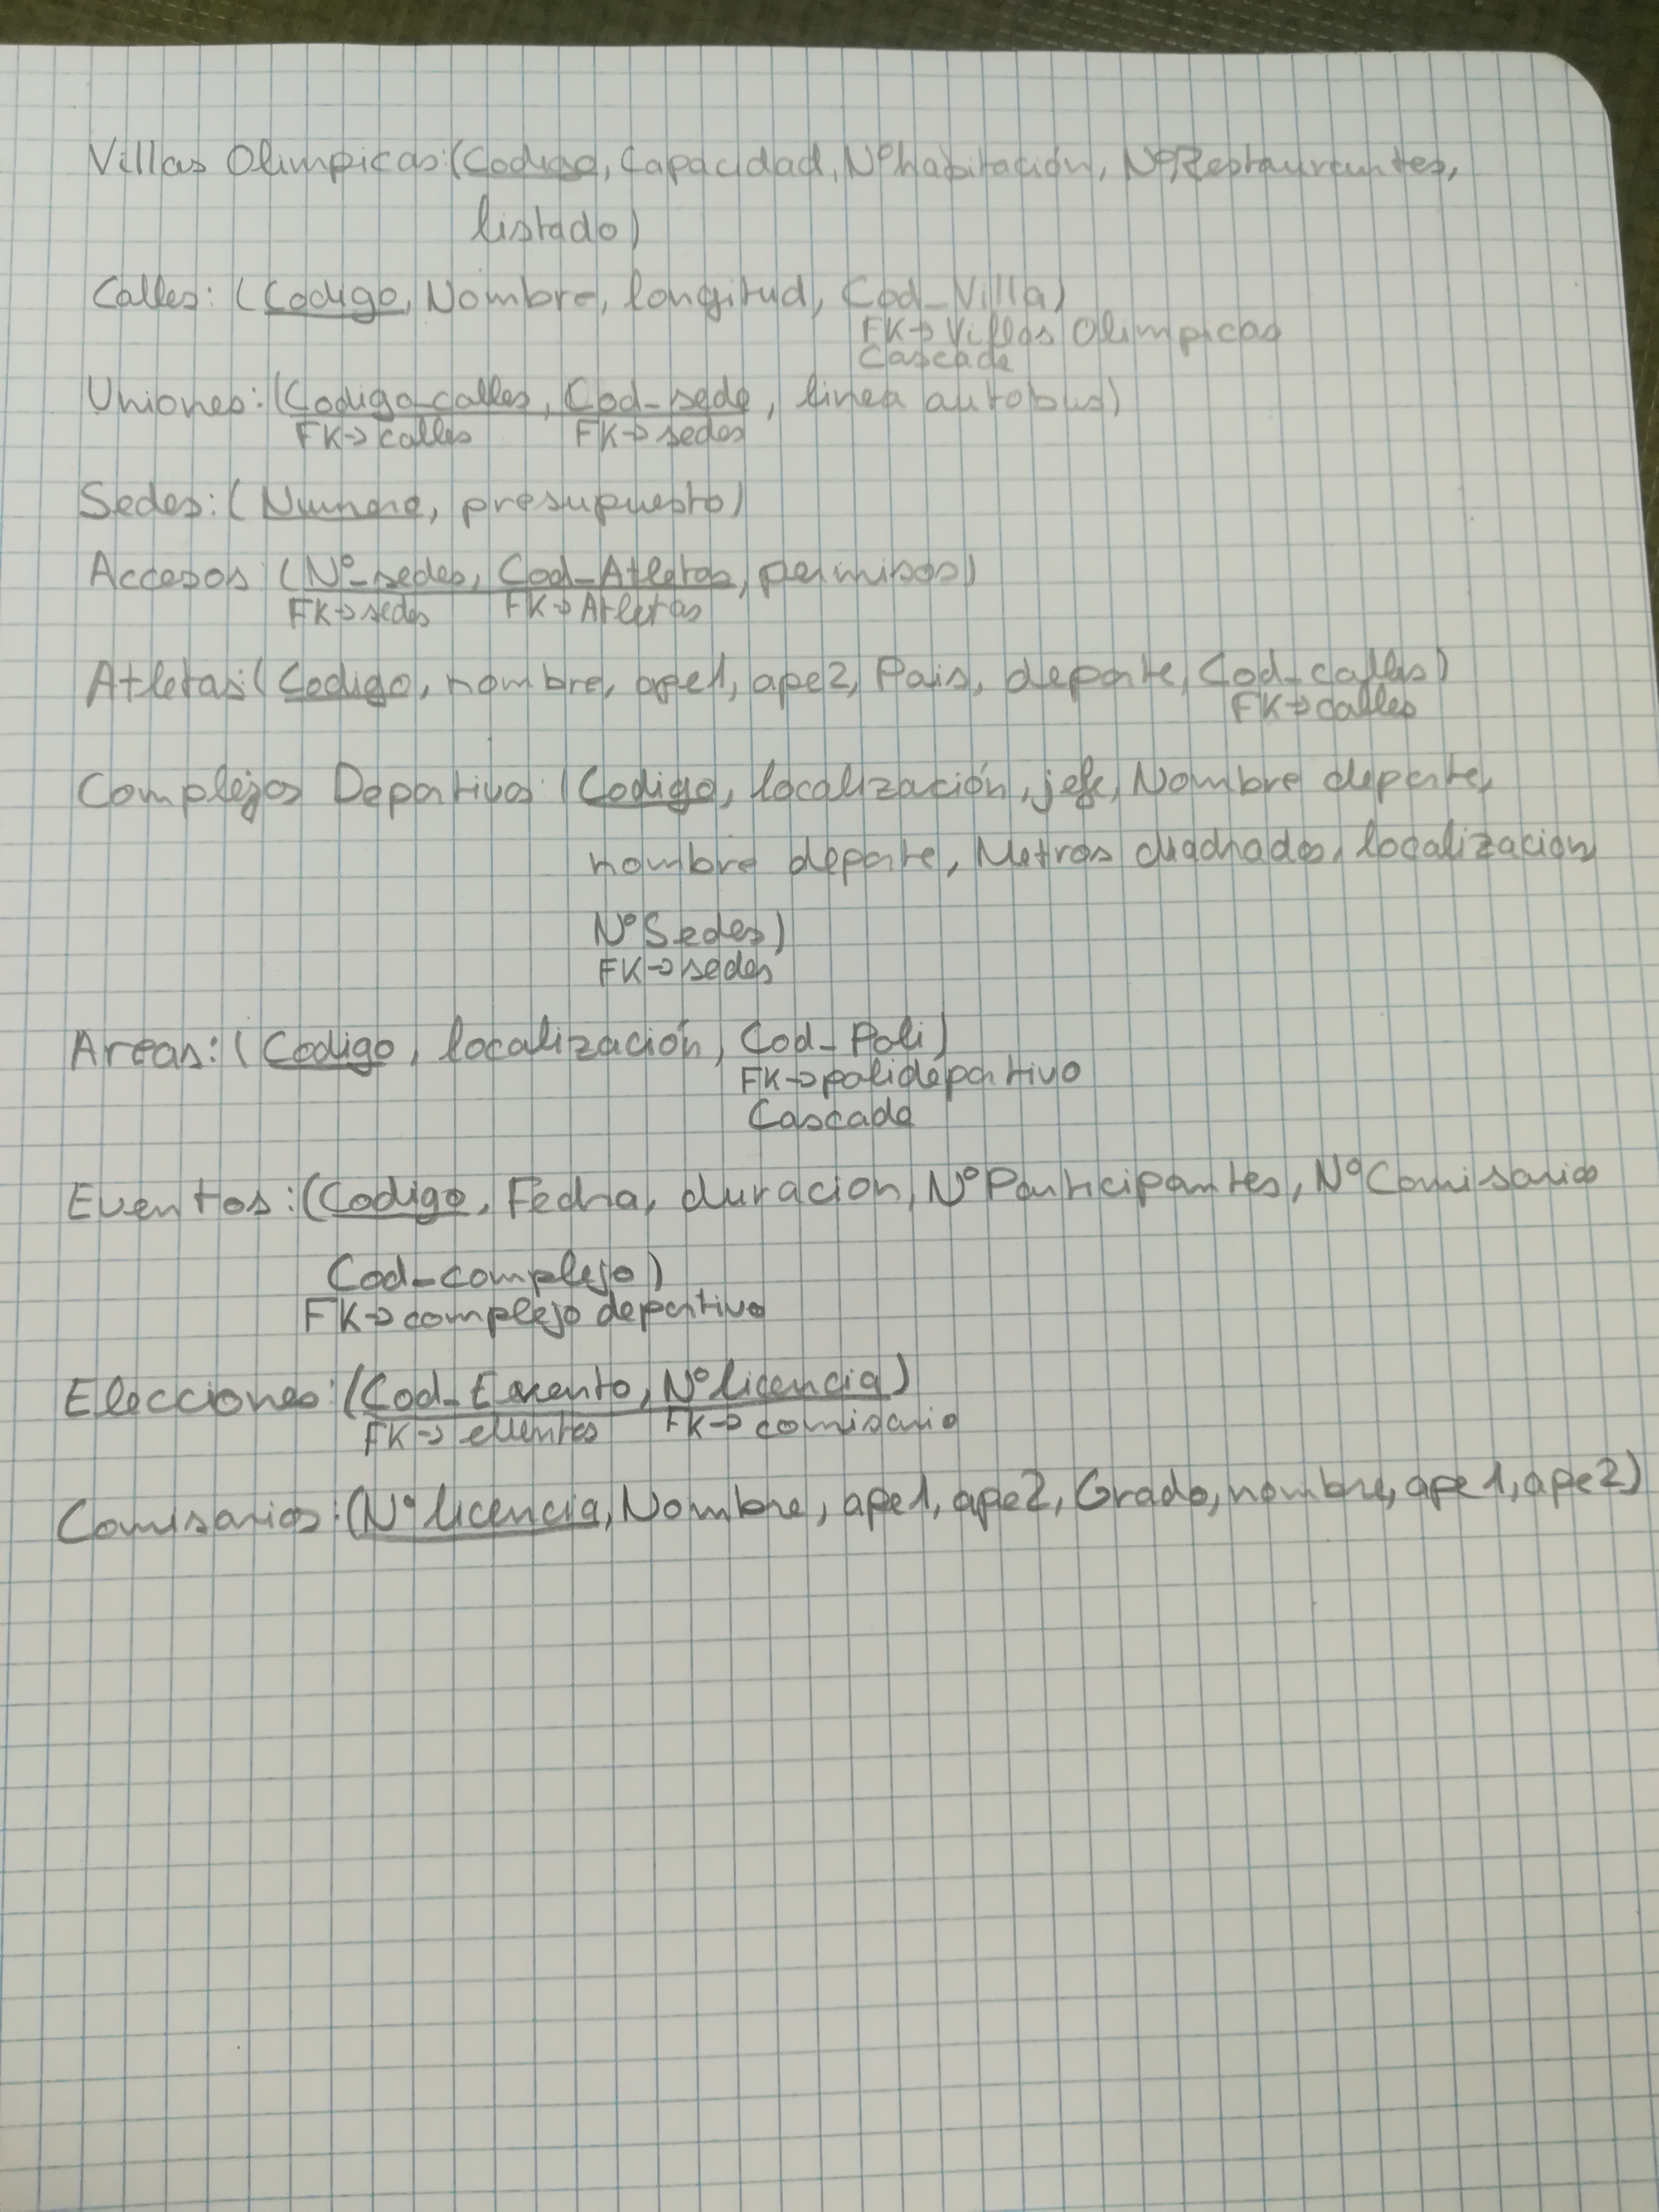 Villas Olimpicas:(Codigo, Capacidad, Nºhabitación, NºRestaurantes,
listado)
Calles: (Codigo, Nombre, longitud, Cod_Villa)
FK→Villas Olimpicas
Cascade
Uniones:(Codigo_calles, Cod_sede, linea autobus)
FK→calles FK→sedes
Sedes:( , presupuesto)
Accesos (Nº_sedes, Cod_Atletas, permisos)
FK→sedes FK→Atletas
Atletas:(Codigo, nombre, ape1, ape2, Pais, deporte, Cod_calles)
FK→calles
Complejos Deportivos (Codigo, localización, jefe, Nombre deporte,
nombre deporte, Metros cuadrados, localización
NºSedes)
FK→sedes
Areas:(Codigo, localización, Cod_Poli)
FK→polideportivo
Cascade
Eventos:(Codigo, Fecha, duracion, NºParticipantes, NºComisarios
Cod_complejo)
FK→complejo deportivo
Elecciones:(Cod_Evento, Nºlicencia)
FK→eventos FK→comisario
Comisarios:(Nºlicencia, Nombre, ape1, ape2, Grado, nombre, ape1, ape2)